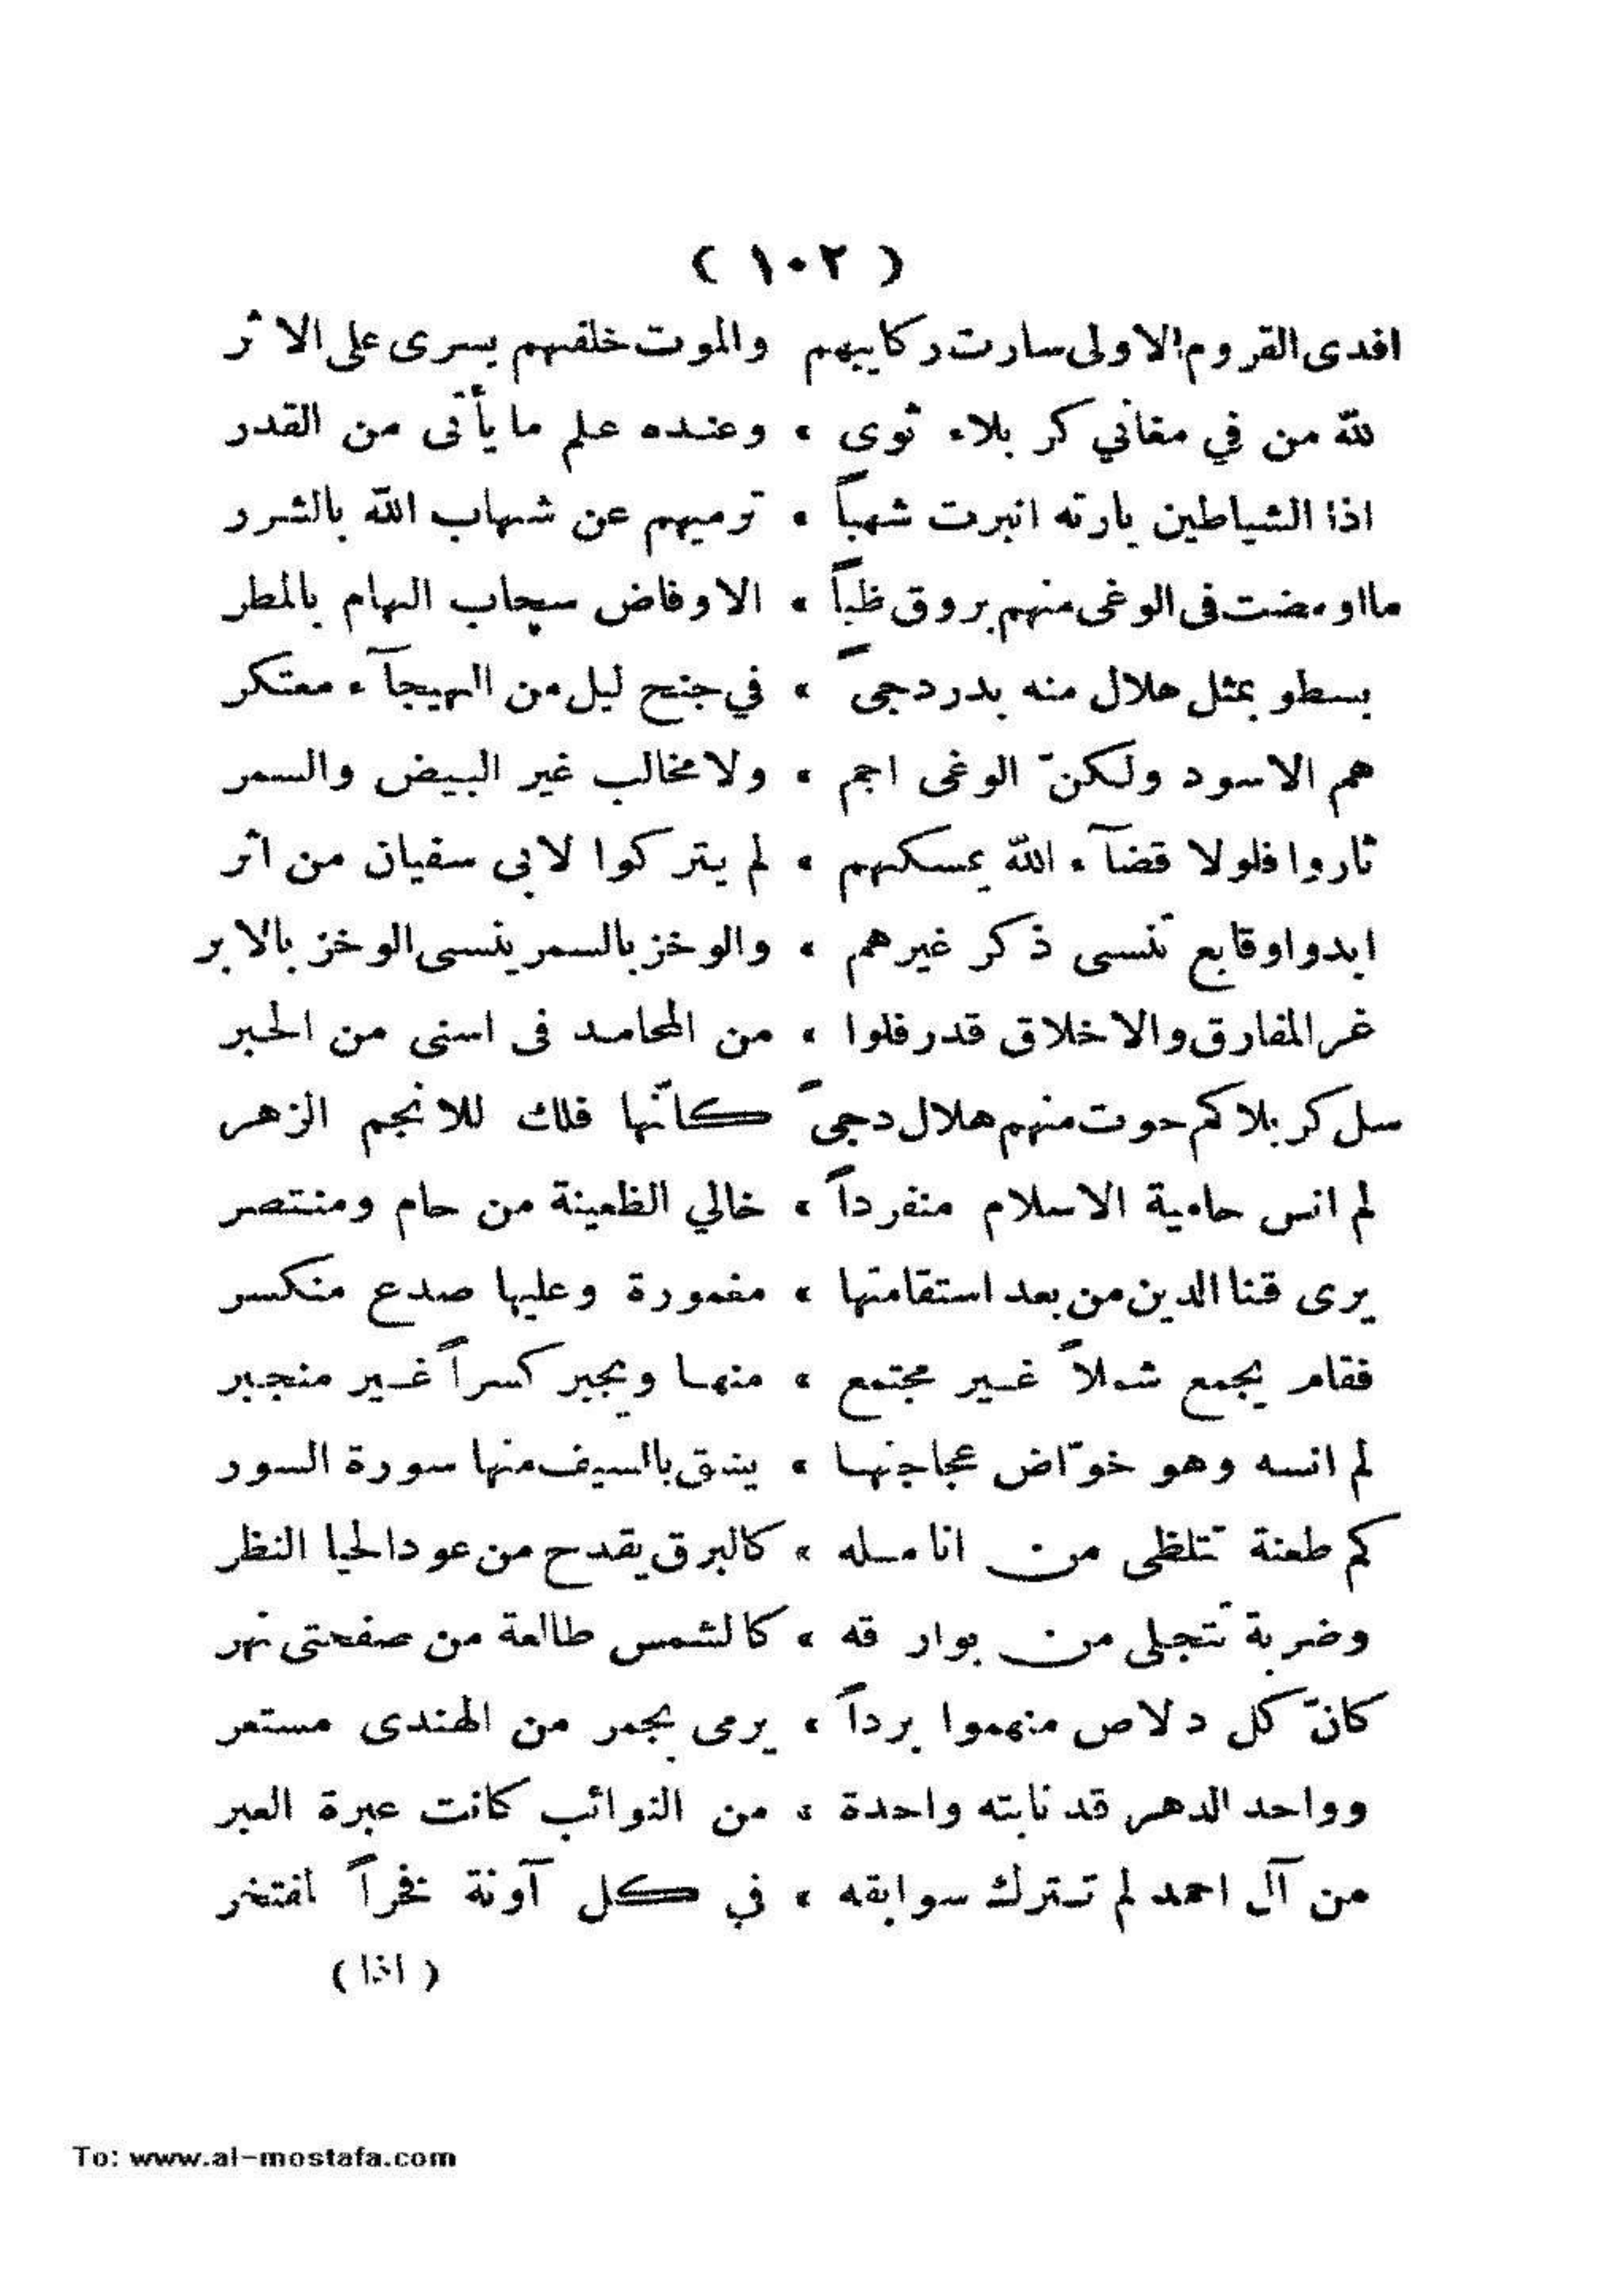 ( ١٠٢ )
افدى القروم الاولى سارت ركايبهم والموت خلفهم يسرى على الاثر
للّٰه من في مغاني كربلاء ثوى ، وعنده علم ما يأتى من القدر
اذا الشياطين بارته انبرت شهباً ، ترميهم عن شهاب اللّٰه بالشرر
ما اومضت فى الوغى منهم بروق ظباً ، الا وفاض سحاب الهام بالمطر
يسطو بمثل هلال منه بدر دجىً ، في جنح ليل من الهيجآء معتكر
هم الاسود ولكنّ الوغى اجم ، ولا مخالب غير البيض والسمر
ثاروا فلولا قضآء اللّٰه يمسكهم ، لم يتركوا لابى سفيان من اثر
ابدوا وقايع تنسى ذكر غيرهم ، والوخز بالسمر ينسى الوخز بالابر
غر المفارق والاخلاق قد رفلوا ، من المحامد فى اسنى من الحبر
سل كربلا كم حوت منهم هلال دجىً كانّها فلك للانجم الزهر
لم انس حامية الاسلام منفرداً ، خالي الظعينة من حام ومنتصر
يرى قنا الدين من بعد استقامتها ، مغمورة وعليها صدع منكسر
فقام يجمع شملاً غير مجتمع ، منها ويجبر كسراً غير منجبر
لم انسه وهو خوّاض عجاجتها ، يشق بالسيف منها سورة السور
كم طعنة تتلظى من انامله ، كالبرق يقدح من عود الحيا النظر
وضربة تتجلى من بوارقه ، كالشمس طالعة من صفحتى نهر
كانّ كل دلاص منهموا برداً ، يرمى بجمر من الهندى مستعر
وواحد الدهر قد نابته واحدة ، من النوائب كانت عبرة العبر
من آل احمد لم تترك سوابقه ، في كل آونة فخراً لمفتخر
( اذا )
To: www.al-mostafa.com